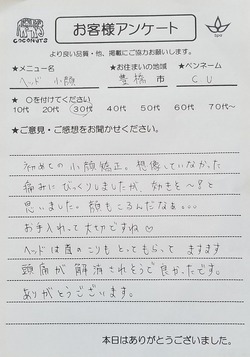 COCONUTS
お客様アンケート
spa
より良い品質・他、掲載にご協力お願いします。
★メニュー名 ★お住まいの地域 ★ペンネーム
ヘッド 小顔 豊橋 市 C U
★ 〇を付けてください
10代 20代 30代 40代 50代 60代 70代〜
★ご意見・ご感想をお聞かせください。
初めての小顔矯正。想像していなかった
痛みにびっくりしましたが、効きそ〜!!と
思いました。顔もこるんだなぁ...
お手入れって大切ですね♡
ヘッドは首のこりもとってもらって ますます
頭痛が解消されそうで良かったです。
ありがとうございます。
本日はありがとうございました。